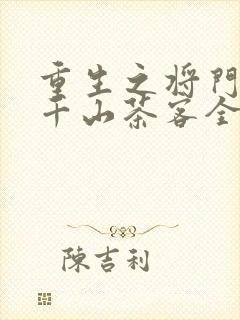 重生之将门
千山茶客全
陳吉利